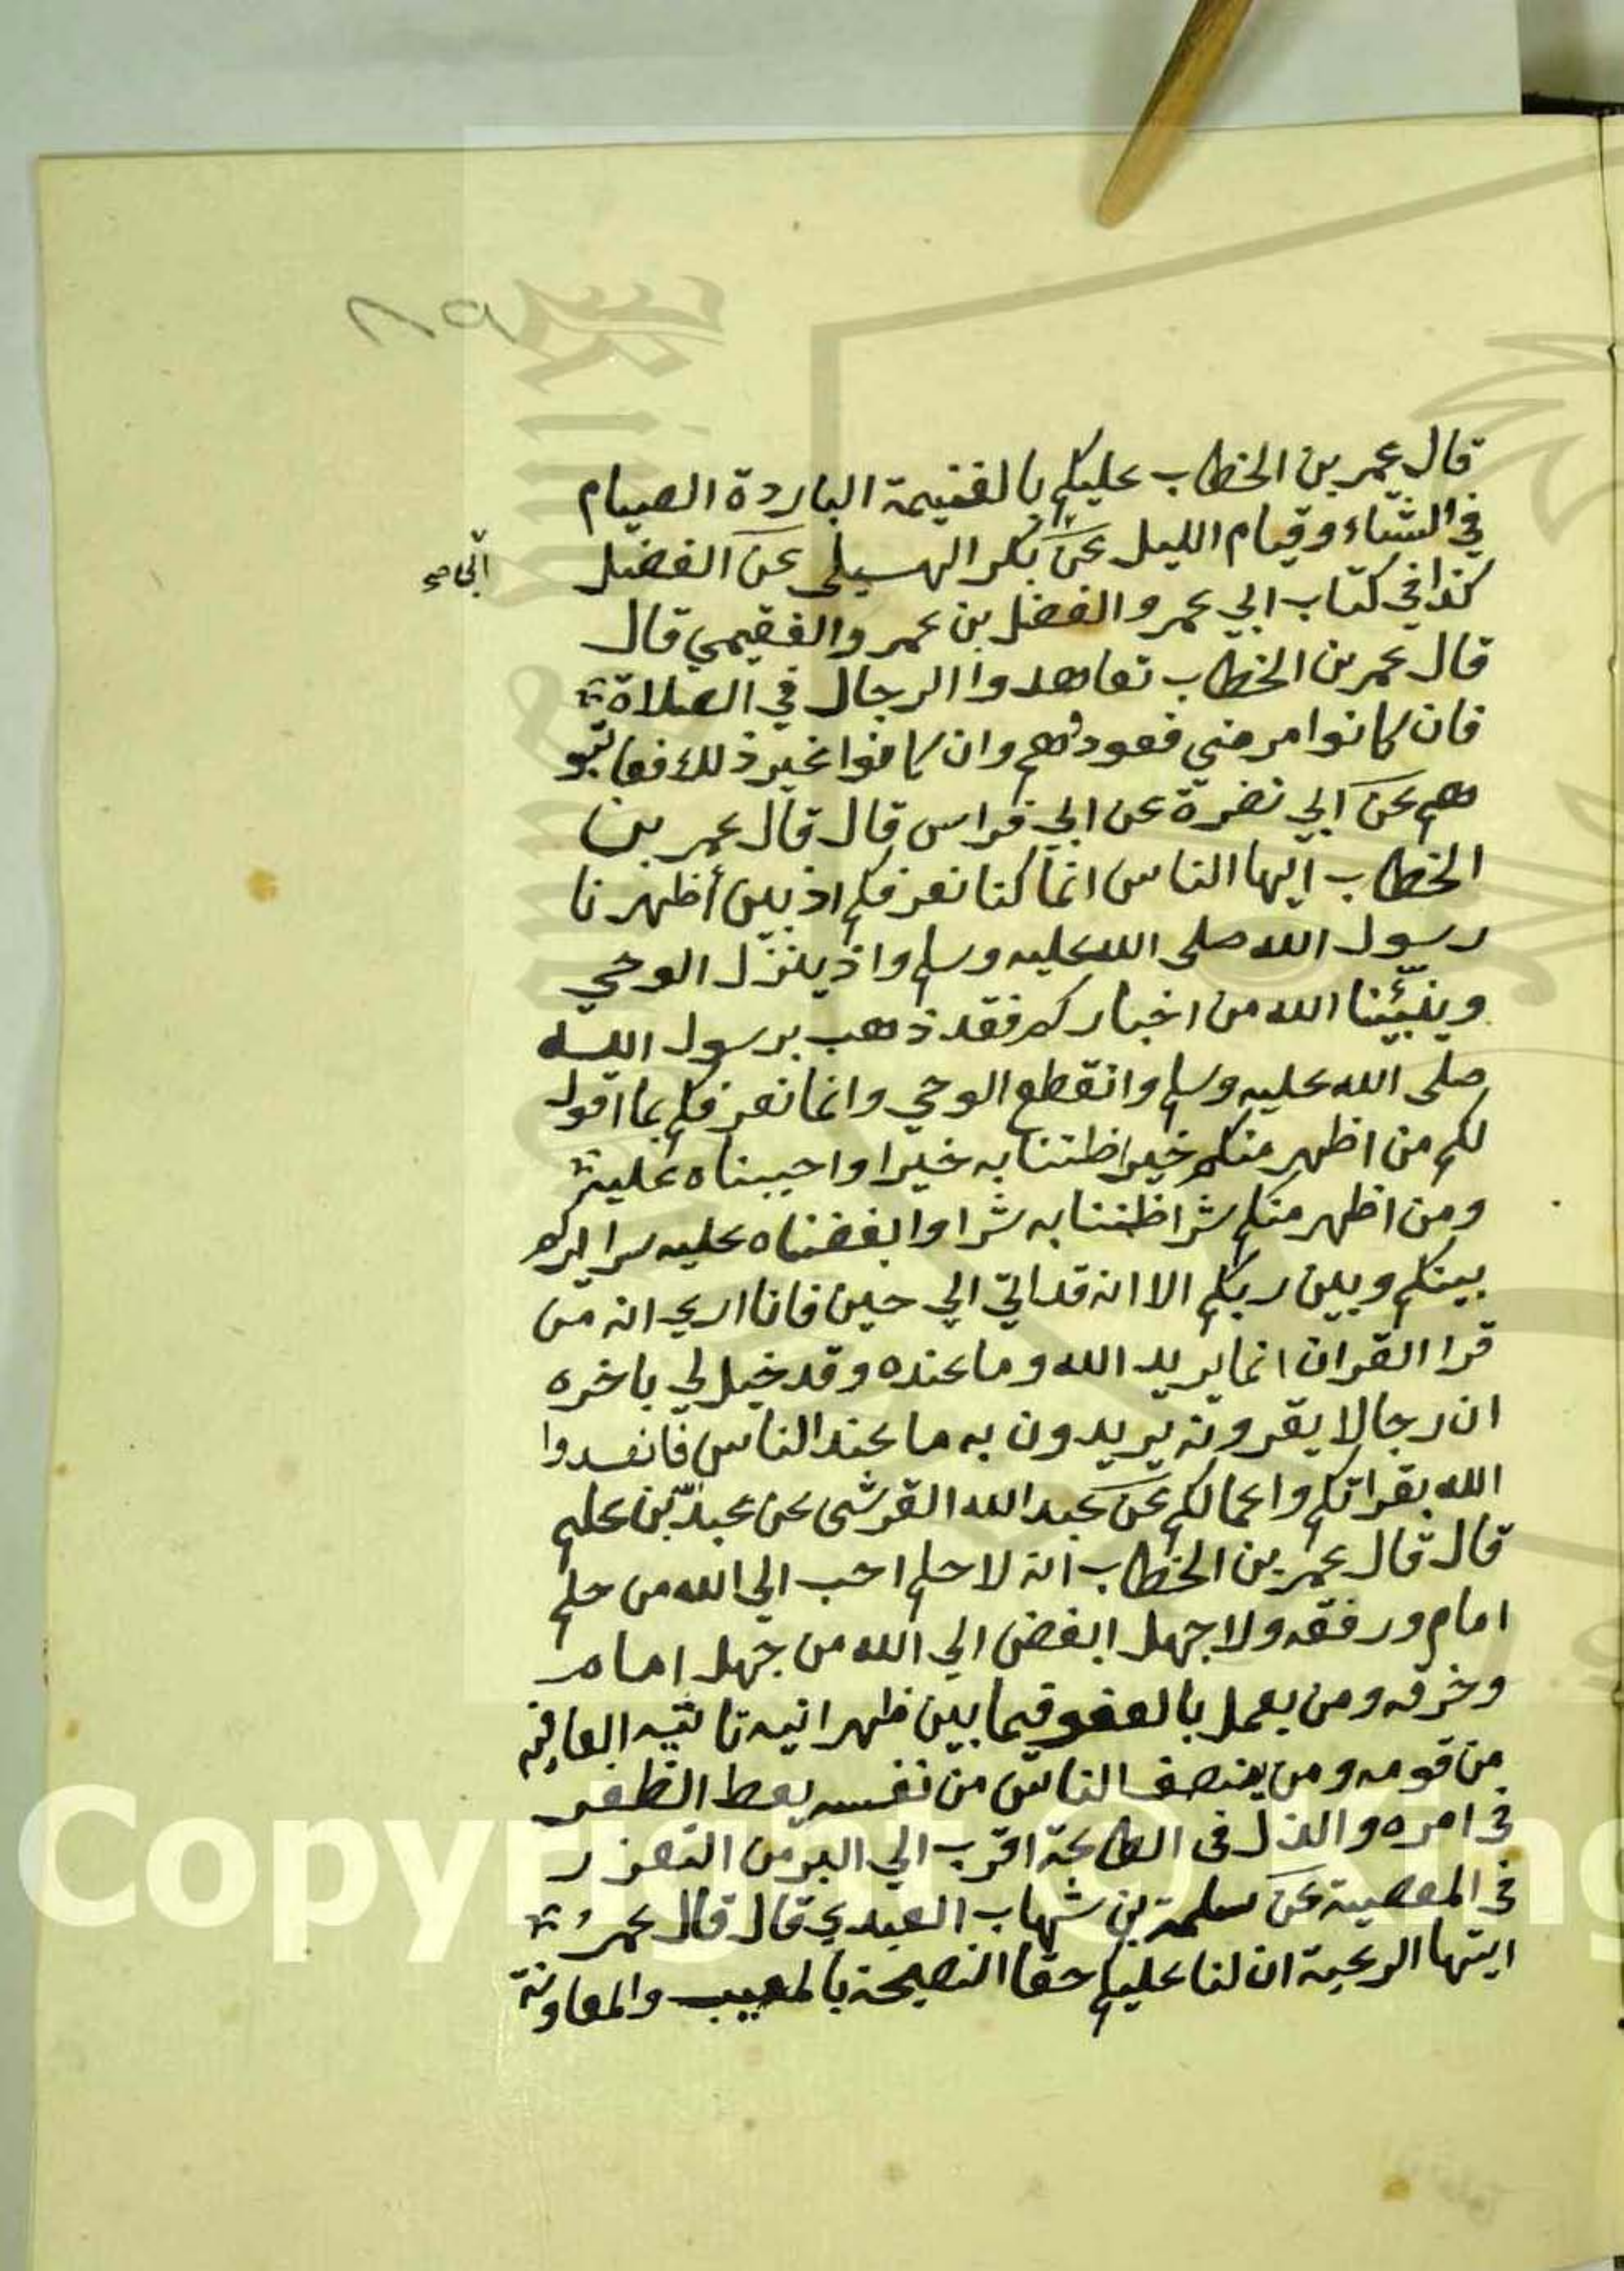 ٨٩
قال عمر بن الخطاب عليكم بالغنيمة الباردة الصيام
في الشتاء وقيام الليل عن بكر الهسيلى عن الفضل
كذا في كتاب ابي عمر والفضل بن عمر والفقيمي قال
قال عمر بن الخطاب تعاهدوا الرجال في الصلاة
فان كانوا مرضي فعودوهم وان كانوا غير ذلك فعاتبو
هم عن ابي نضرة عن ابي فراس قال قال عمر بن
الخطاب ايها الناس انما كنا نعرفكم اذ بين أظهرنا
رسول الله صلى الله عليه وسلم واذ ينزل الوحي
وينبّئنا الله من اخباركم فقد ذهب برسول الله
صلى الله عليه وسلم وانقطع الوحي وانما نعرفكم بما اقول
لكم من اظهر منكم خيرا ظننا به خيرا واحببناه عليه
ومن اظهر منكم شرا ظننا به شرا وابغضناه عليه سرايركم
بينكم وبين ربكم الا انه قد اتي الي حين فانا اري انه من
قرا القران انما يريد الله وما عنده وقد خيل لي باخره
ان رجالا يقرونه يريدون به ما عند الناس
الله بقراتكم واعمالكم عن عبد الله القرشى عن عبد بن عليم
قال قال عمر بن الخطاب انه لا حلم احب الي الله من حلم
امام ورفقه ولا جهل ابغض الي الله من جهل امام
وخرقه ومن يعمل بالعفو فيما بين ظهرانيه تاتيه العافية
من قومه ومن ينصف الناس من نفسه يعط الظفر
في امره والذل في الطاعة اقرب الي البر من التعزر
في المعصية عن سلمة بن شهاب العبدي قال قال عمر
ايتها الرعية ان لنا عليكم حقا النصيحة بالمغيب والمعاونة
Copyright © King